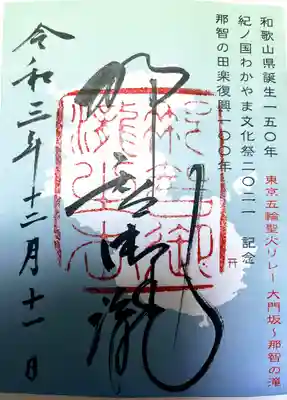 和歌山県誕生一五〇年
紀ノ国わかやま文化祭二〇二一　記念
那智の田楽復興一〇〇年
東京五輪聖火リレー 大門坂～那智の滝
那智御瀧
令和三年十二月十一日